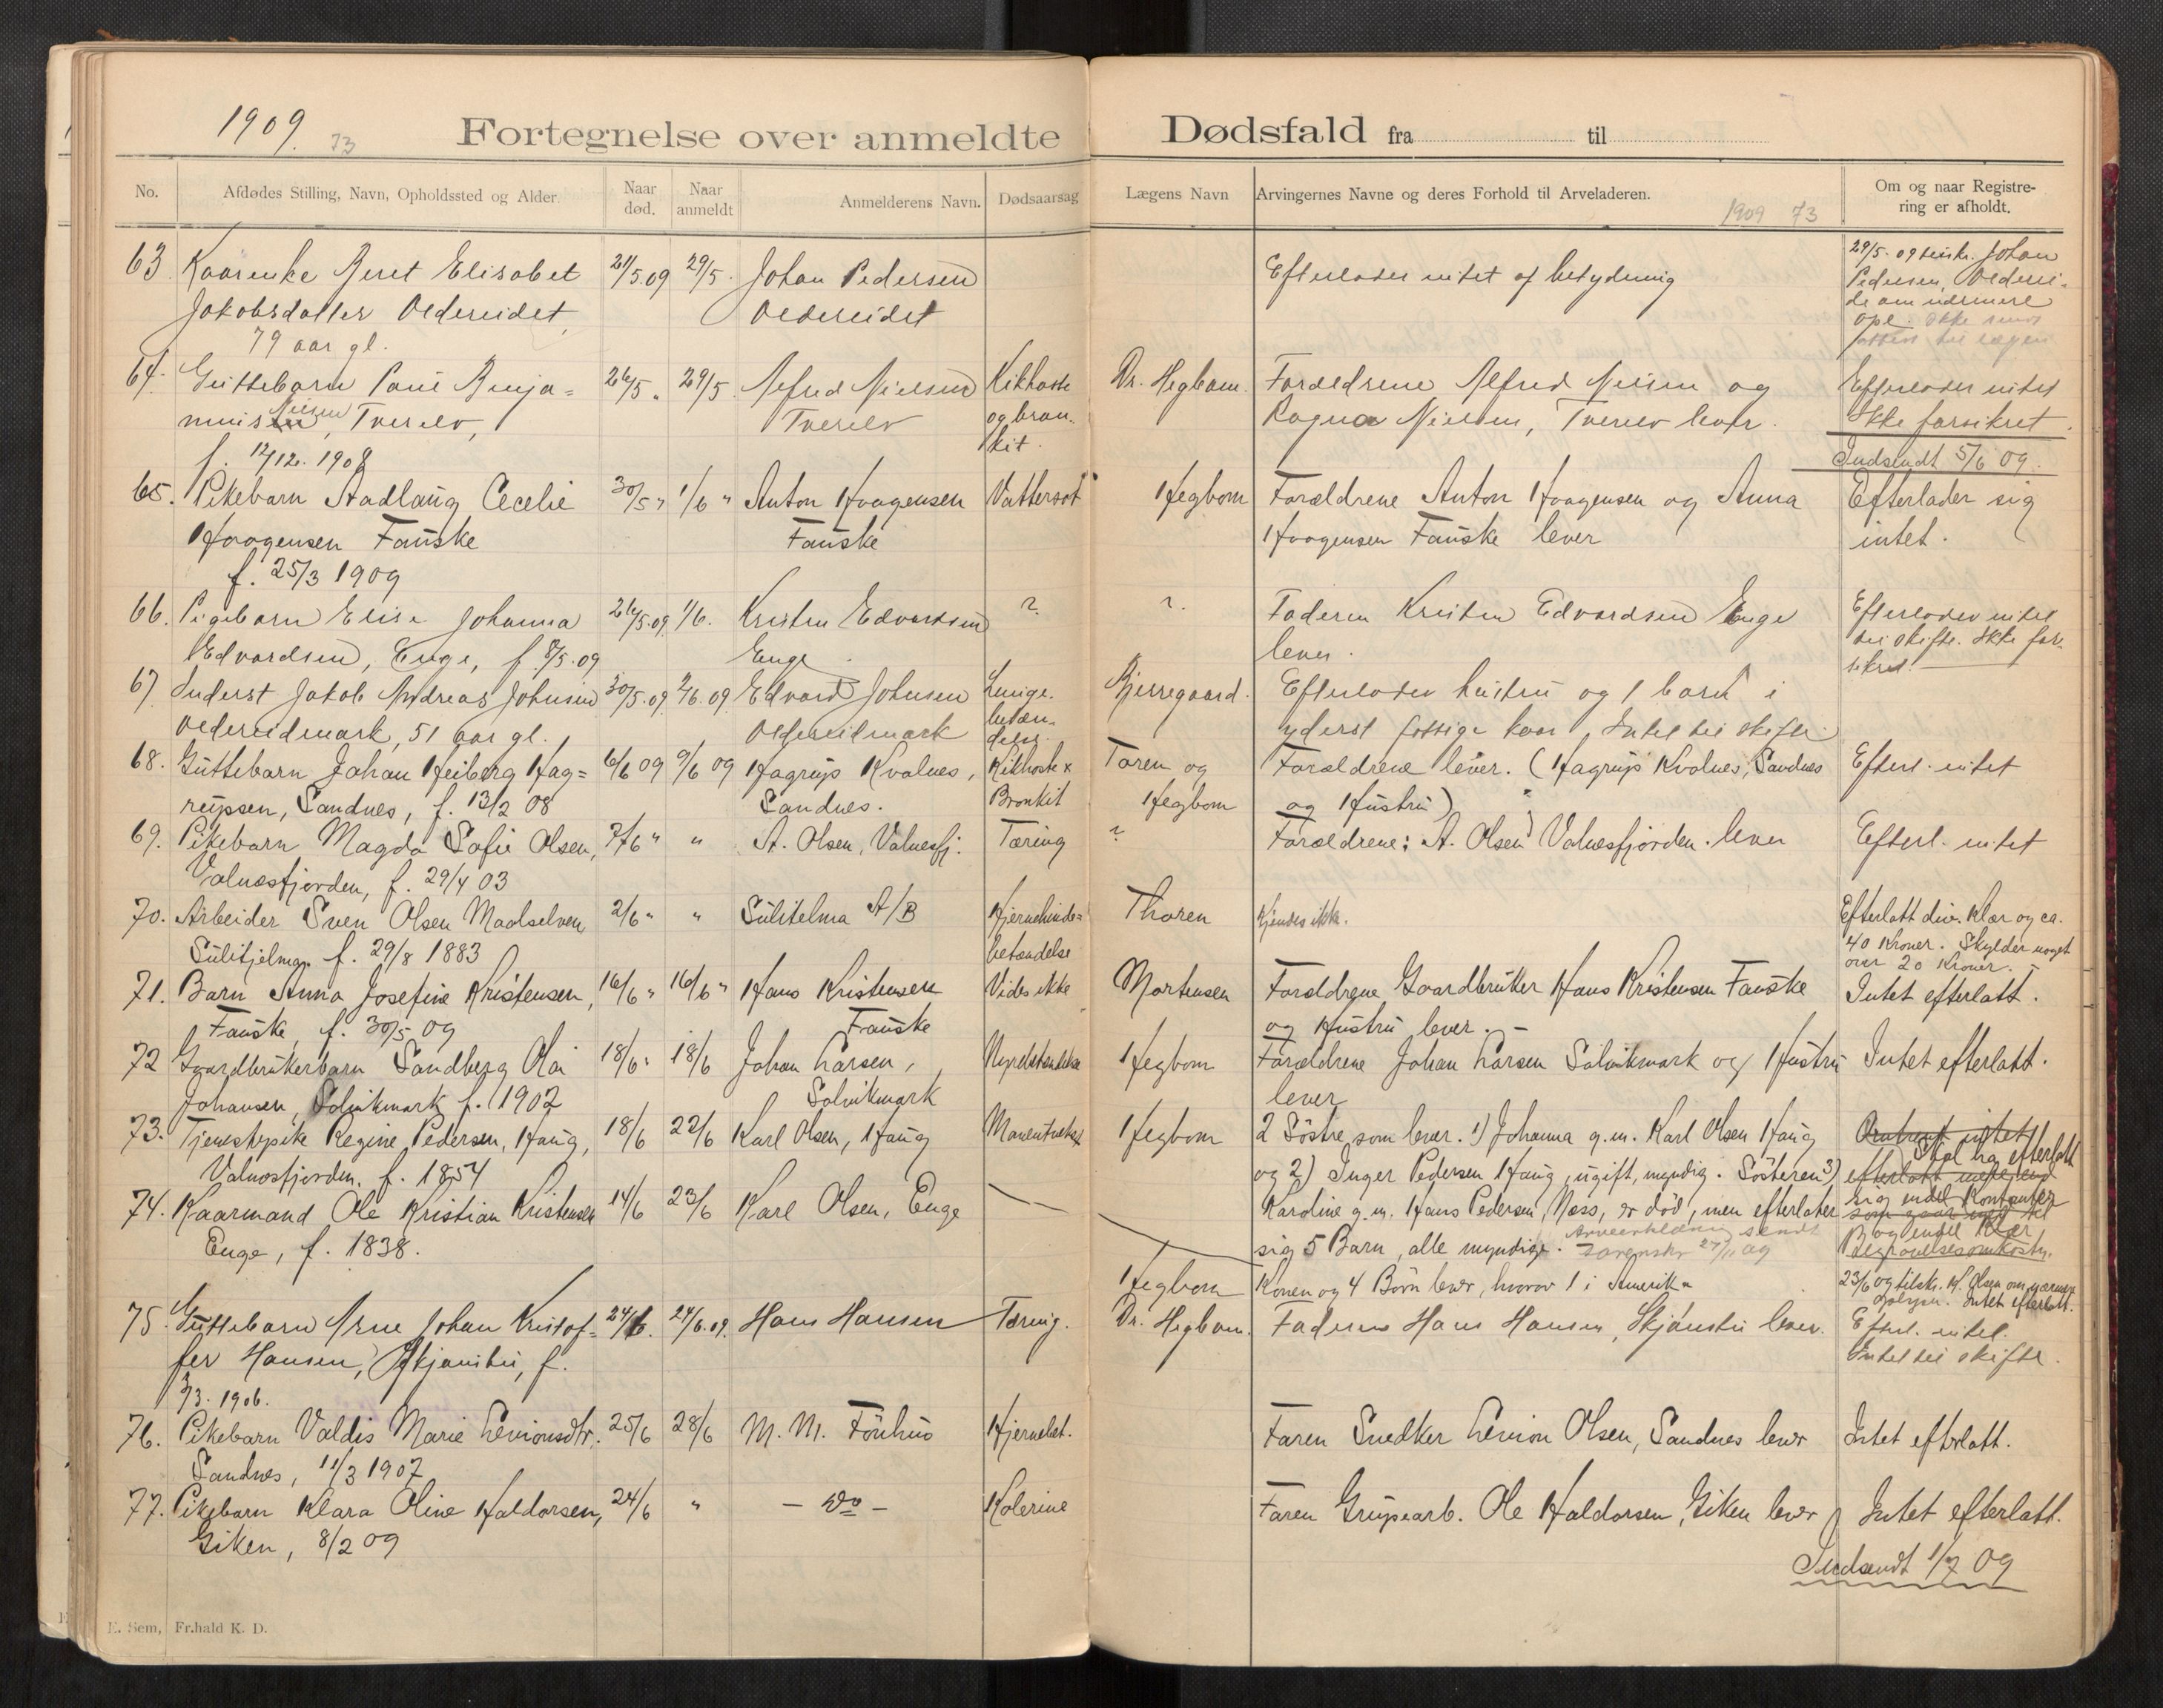 1909. 73
Fortegnelse over anmeldte Dødsfald fra til
No.
Afdødes Stilling, Navn, Opholdssted og Alder.
Naar død.
Naar anmeldt
Anmelderens Navn.
Dødsaarsag
Lægens Navn
Arvingernes Navne og deres Forhold til Arveladeren.
1909 73
Om og naar Registre-
ring er afholdt.
63. Kaarenke Beret Elisabet 21/5.09 29/5. Johan Pedersen Efterlader intet af betydning
Jakobsdatter Oldereidet, Oldereidet
79 aar gl.
29/5.09 Johan
Pedersen,
64. Guttebarn Benja= 26/5 " 29/5. Alfred Nielsen Kikhoste Dr. Hegbom. Forældrene Alfred Nilsen og Efterlader intet
Nilsen, Tverelv, Tverelv og bron- Ragna Nielsen, Tverelv lever. Ikke forsikret.
f. 12/12. 1908 kit.
Indsendt 5/6 09.
65. Pikebarn Aadlaug Cecelie 30/5 " 1/6 " Anton Haagensen Vattersot Hegbom Forældrene Anton Haagensen og Anna Efterlader sig
Haagensen Fauske Fauske Haagensen Fauske lever intet.
f. 25/3 1909
66. Pigebarn Elise Johanna 26/5.09 1/6. Kristen Edvardsen ? ?. Faderen Kristen Edvardsen Enge Efterlader intet
Edvardsen, Enge, f. 8/5.09 Enge lever. til skifte. Ikke for-
sikret
67 Inderst Jakob Andreas Johnsen 30/5.09 2/6.09 Edvard Johnsen Lunge- Bjerregaard. Efterlader hustru og 1 barn i
Oldereidmark, 51 aar gl. Oldereidmark betæn- yderst fattige kaar. Intet til skifte.
delse.
68. Guttebarn Johan Heiberg Hag= 6/6 09 9/6 09 Hagrup Kvalnes, Kikhoste & Toren og Forældrene lever. (Hagrup Kvalnes, Sandnes Efterl. intet
rupsen, Sandnes, f. 13/2 08 Sandnes. Bronkit Hegbom og Hustru)
69. Pikebarn Magda Sofie Olsen, 7/6 " " A. Olsen, Valnesfj. Tæring ? Forældrene: A. Olsen Valnesfjorden. lever Efterl. intet
Valnesfjorden, f. 29/4 03
70. Arbeider Sven Olsen Maalselven 2/6 " " Sulitelma A/B Hjernehinde= Thoren Kjendes ikke. Efterlatt div. Klær og ca.
Sulitjelma. f. 29/8 1883 betændelse 40 Kroner. Skylder noget
over 20 Kroner.
71. Barn Anna Josefine Kristensen, 16/6 " 16/6 " Hans Kristensen Vides ikke Mortensen Forældrene Gaardbruker Hans Kristensen Fauske Intet efterlatt.
Fauske, f. 30/5 09 Fauske og Hustru lever. -
72 Gaardbrukerbarn Sandberg Olai 18/6 " 18/6 Johan Larsen, Hegbom Forældrene Johan Larsen Solvikmark og Hustru Intet efterlatt.
Johansen, Solvikmark f. 1902 Solvikmark lever
73. Tjenestepike Regine Pedersen, Haug, 18/6 22/6 Karl Olsen, Haug Hegbom 2 Söstre som lever. 1) Johanna g.m. Karl Olsen Haug Skal ha efterlatt
Valnesfjorden. f. 1854 og 2) Inger Pedersen Haug, ugift, myndig. Söstren 3) sig endel Kontanter
Karoline g.m. Hans Pedersen, Næss, er död, men efterlater og endel Klær
sig 5 Barn, alle myndige. 27/11 09
74. Kaarmand Ole Kristian Kristensen 14/6 23/6 Karl Olsen, Enge Hegbom Konen og 4 Börn lever, hvorav 1 i Amerika 23/6 09 tilsk. K. Olsen om nærmere
Enge, f. 1838. Intet efterlatt.
75. Guttebarn Arne Johan Kristof= 24/6. 24/6.09. Hans Hansen Tæring. Dr. Hegbom. Faderen Hans Hansen, Skjønstu lever. Efterl. intet.
fer Hansen, Skjønstu, f. Intet til skifte.
3/3. 1906.
76. Pikebarn Valdis Marie Levionsdtr. 25/6 28/6 M. M. Fönhus Hjernebet. Faren Snedker Levion Olsen, Sandnes lever Intet efterlatt.
Sandnes, 11/3 1907
77. Pikebarn Klara Oline Haldorsen, 24/6 " - Do - Kolerine Faren Grupearb. Ole Haldorsen, Giken lever Intet efterlatt.
Giken, 8/2 09
Indsendt 1/7 09
E. Sem, Fr.hald K. D.